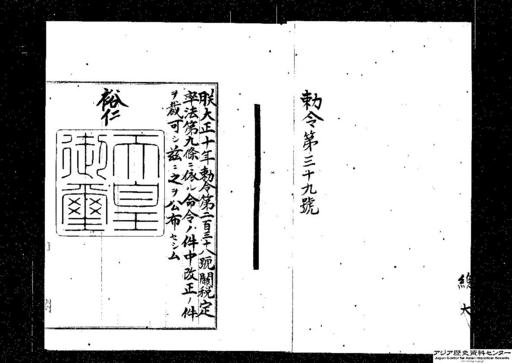 勅令第三十九號
總
大
朕大正十年勅令第二百三十八號關稅定
率法第九條ニ依ル命令ノ件中改正ノ件
ヲ裁可シ茲ニ之ヲ公布セシム
裕仁
天皇
御璽
アジア歴史資料センター
Japan Center for Asian Historical Records